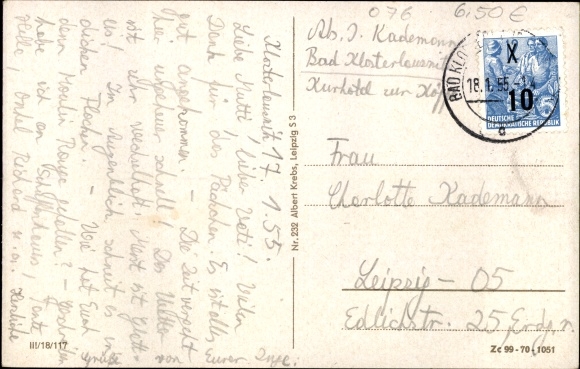 076 6,50 €
Abs. I. Kademann
Bad Klosterlausnitz
Kurheim zur
BAD KLOSTERLAUSNITZ
18.1.55
X
10
DEUTSCHE
DEMOKRATISCHE REPUBLIK
c
Frau
Charlotte Kademann
Leipzig - O5
Edlichstr. 25 Erdg. r.
Nr. 232 Albert Krebs, Leipzig S 3
III/18/117
Zc 99-70-1051
Klosterlausnitz 17.1.55
Liebe Mutti! Lieber Vati! Vielen
Dank für das Päckchen. Es ist alles
gut angekommen. – Die Zeit vergeht
hier ungeheuer schnell! Das Wetter
ist sehr Meist ist
eis! Im Augenblick schneit es in
dicken Flocken. – Wie hat Euch
denn Moulin Rouge gefallen? –
habe ich an Tante
Onkel Richard u. a. Herzliche
Grüße von
Eurer Inge.